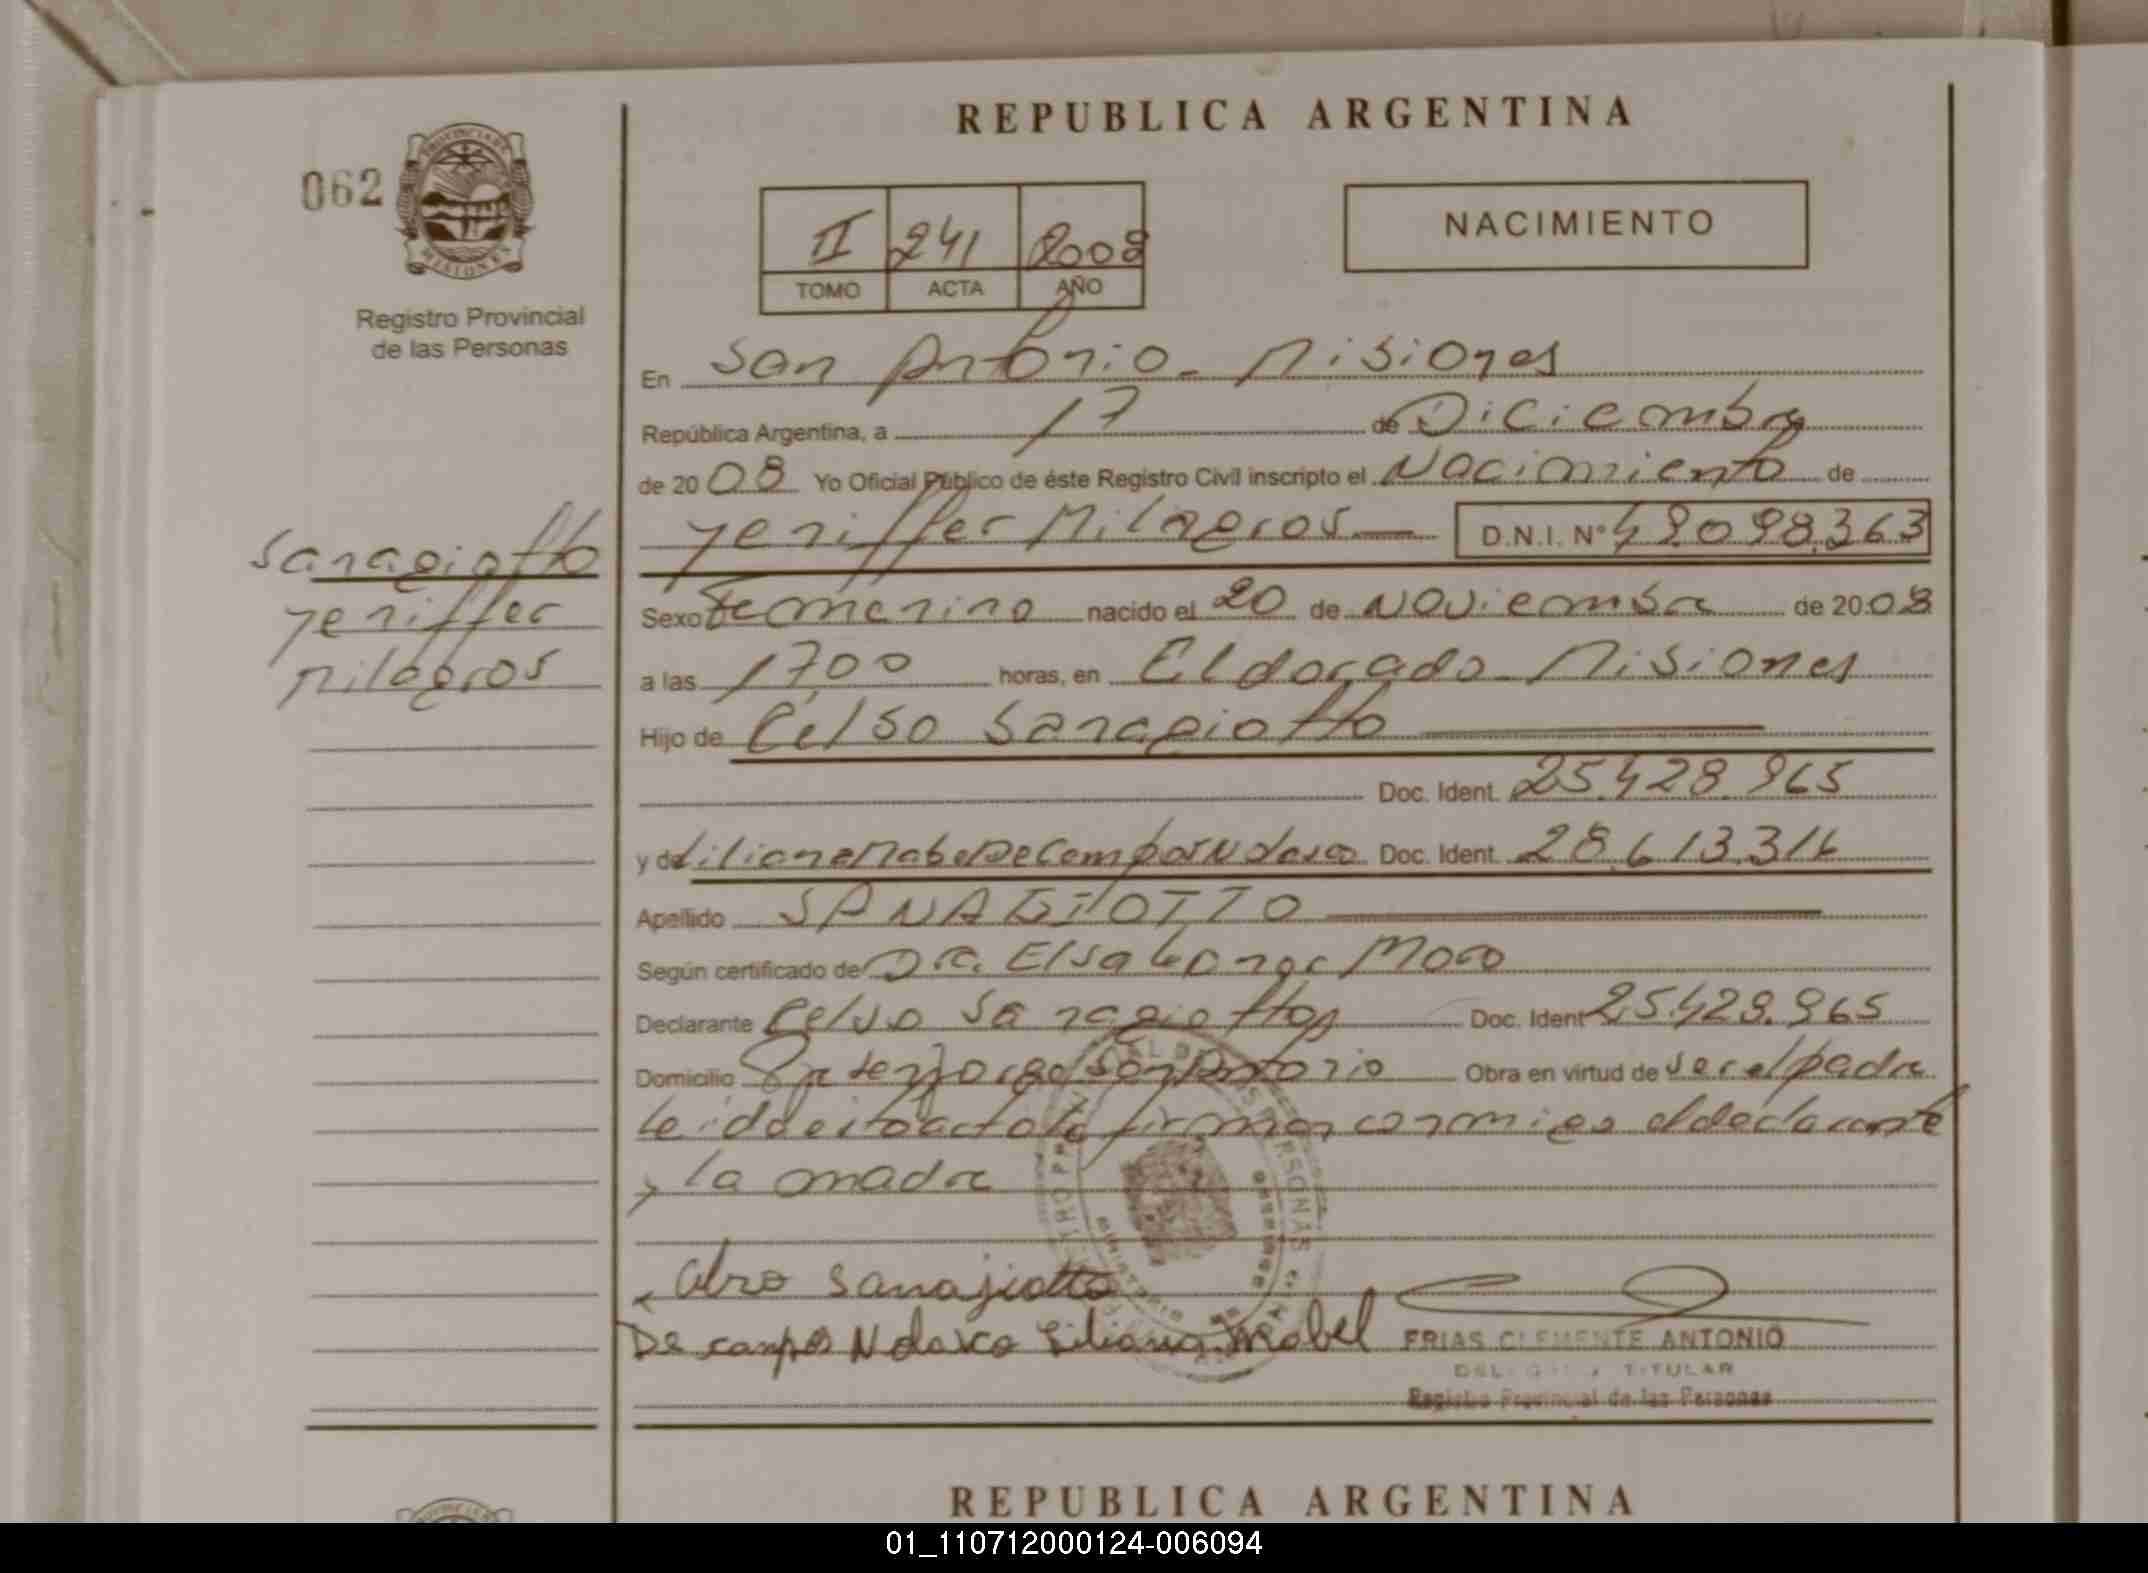 REPUBLICA ARGENTINA
062
PROVINCIA DE
MISIONES
Registro Provincial
de las Personas
II 241 2008
TOMO ACTA AÑO
NACIMIENTO
En San Antonio - Misiones
República Argentina, a 17 de Diciembre
de 2008 Yo Oficial Público de éste Registro Civil inscripto el Nacimiento de
Yeniffer Milagros D.N.I. Nº 49.098.363
Sanagiotto
Yeniffer
Milagros
Sexo Femenino nacido el 20 de Noviembre de 2008
a las 17,00 horas, en Eldorado - Misiones
Hijo de Celso Sanagiotto
Doc. Ident. 25.428.965
y de Liliana Mabel De Campos Doc. Ident. 28.613.316
Apellido SANAGIOTTO
Según certificado de Dra. Elsa Moro
Declarante Celso Sanagiotto Doc. Ident 25.428.965
Domicilio San Antonio Obra en virtud de ser el padre
Leida esta acta la firman conmigo el declarante
y la madre
Sanagiotto
De campos Liliana Mabel
FRIAS CLEMENTE ANTONIO
TITULAR
Registro Provincial de las Personas
REPUBLICA ARGENTINA
01_110712000124-006094